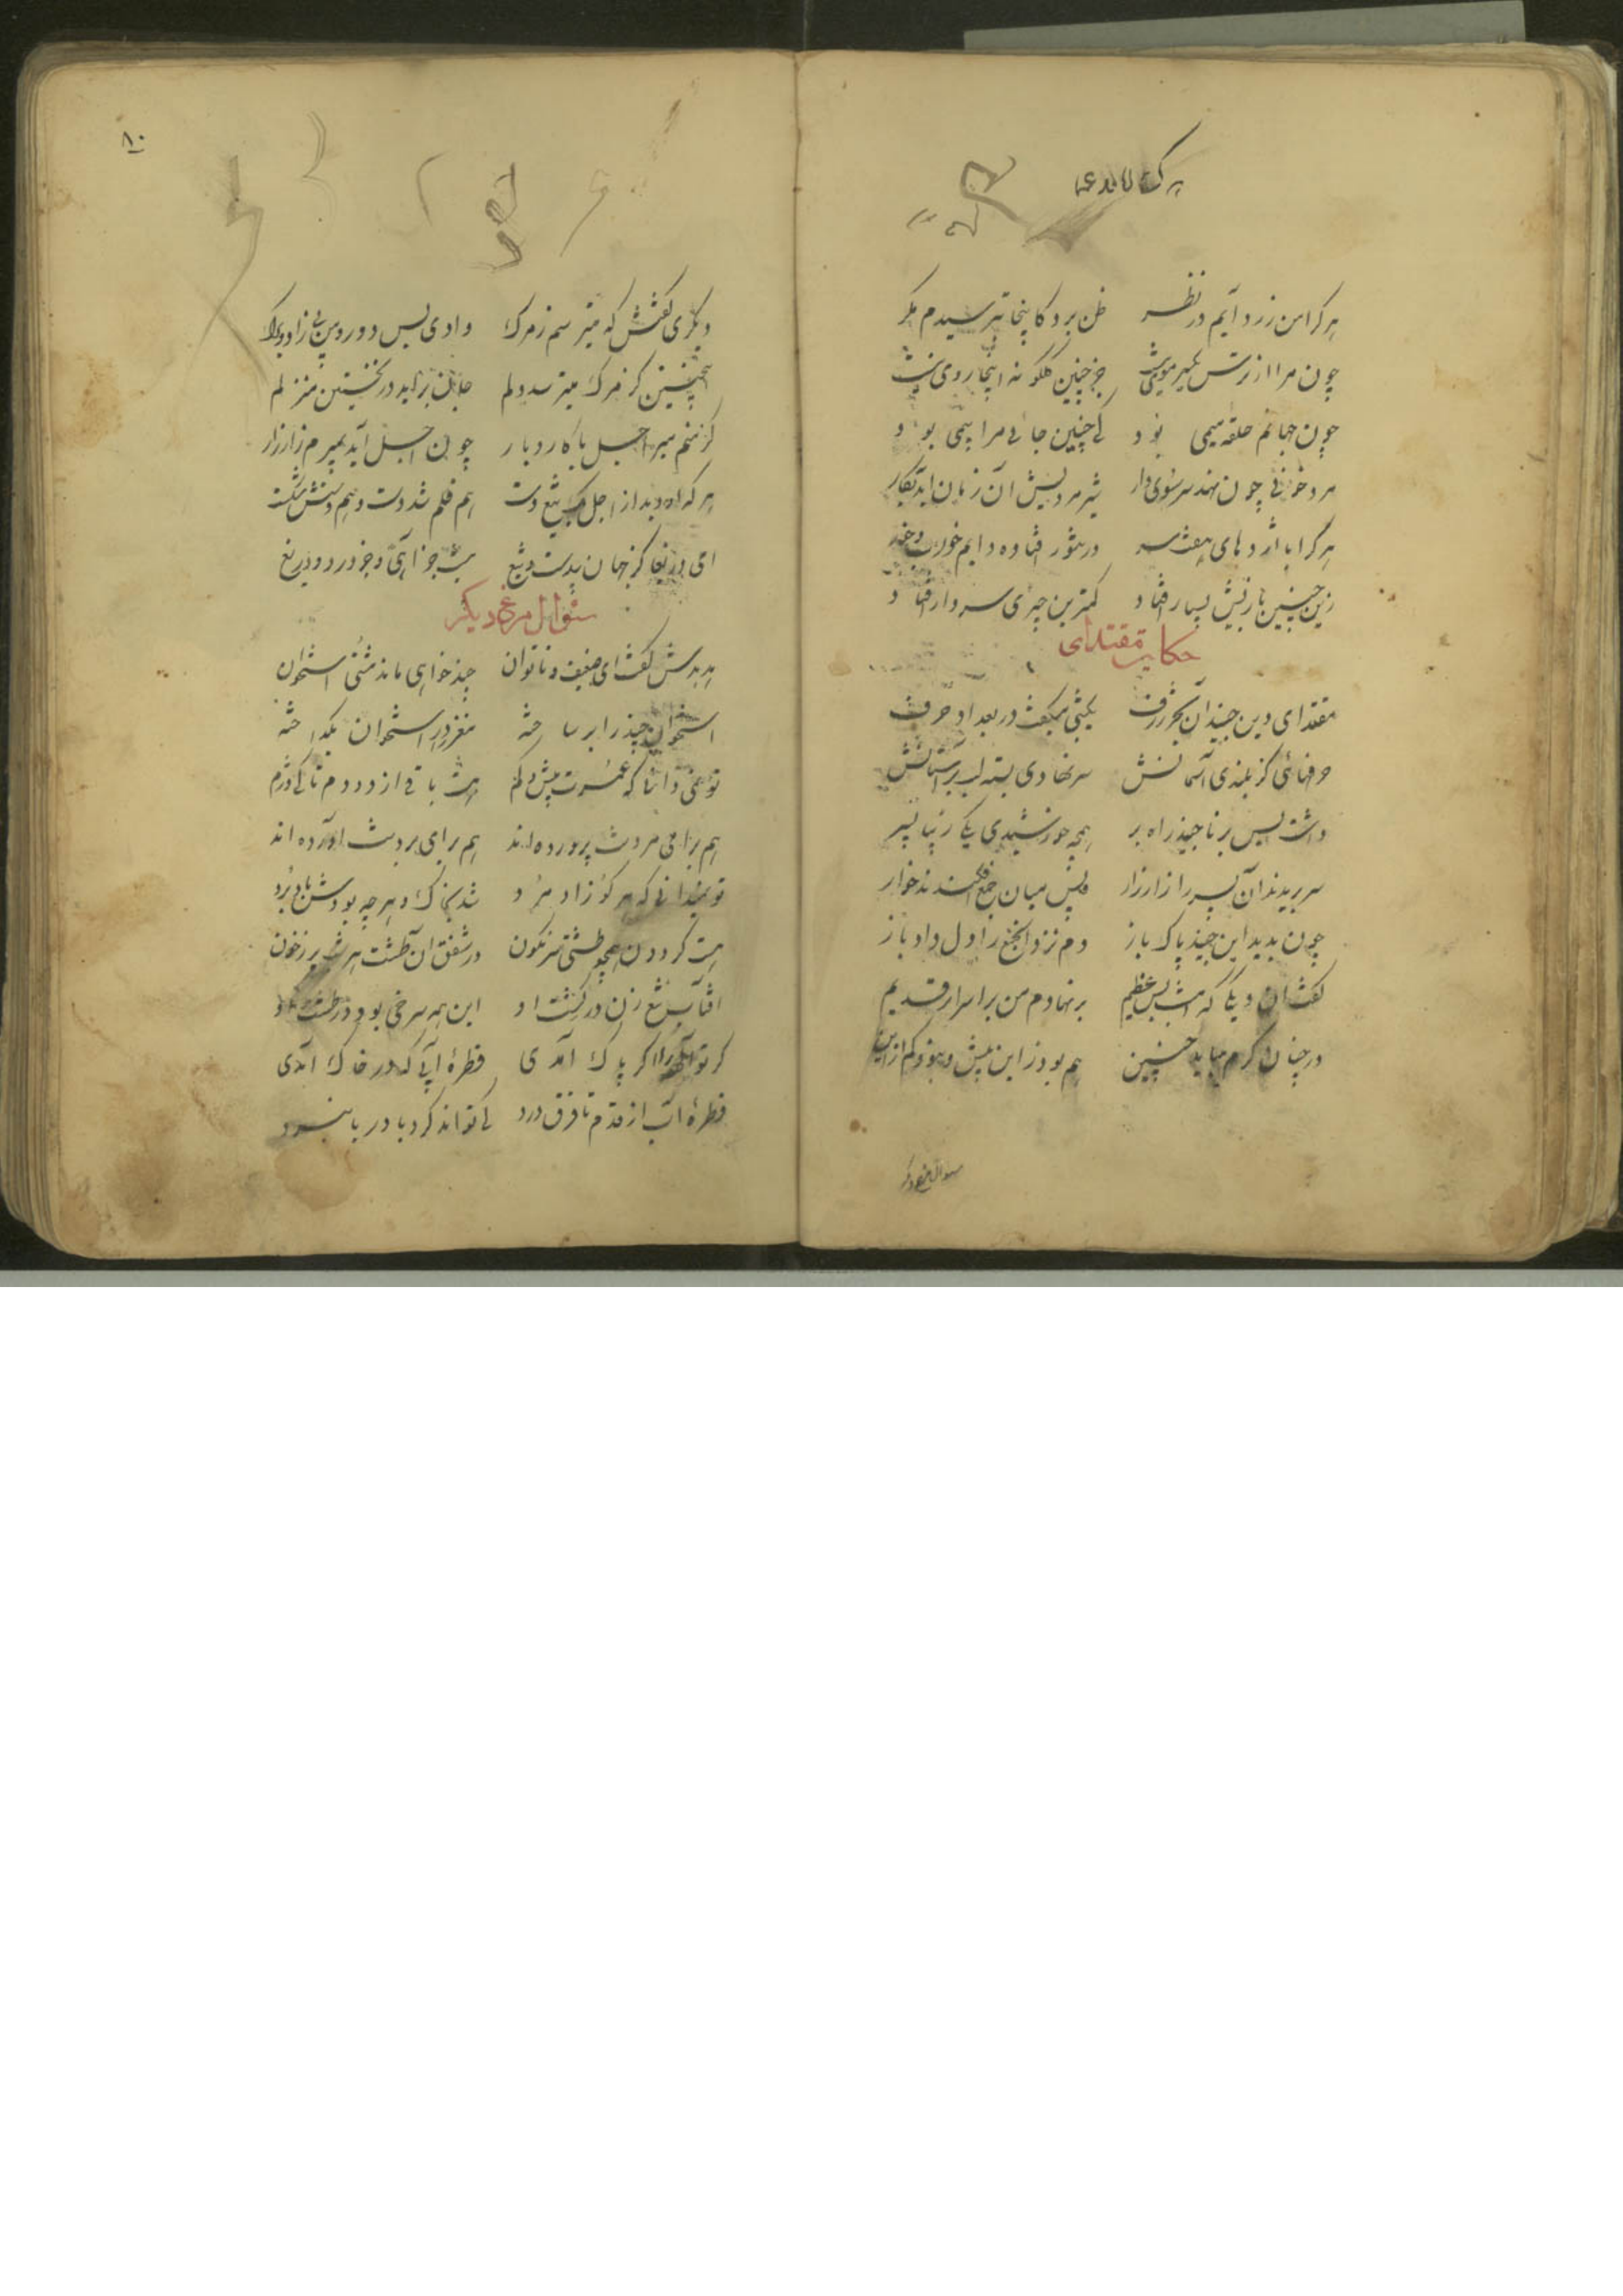 هر کرا من زرد آیم در نظر ظن برد کاینجا بترسیدم مگر
چون مرا از ترس یکسر موی نیست جز چنین گلگونه اینجا روی نیست
چون جهانم حلقهٔ میمی بود کی چنین جائی مرا بیمی بود
مرد خونی چون نهد سر سوی دار شیرمردیش آن زمان آید بکار
هر کرا با اژدهای هفت سر در تموز افتاده دایم خورد و خفت
زین چنین بازیش بسیار افتاد کمترین چیزی سر دار افتاد
حکایت مقتدای
مقتدای دین جنید آن بحر ژرف یکشبی میگفت در بغداد حرف
حرفهائی کز بلندی آسمانش سر نهادی تشنه لب بر آستانش
داشت بس برنا جنید راه بر همچو خورشیدی یکی زیبا پسر
سر بریدند آن پسر را زار زار پس میان جمع افکندند خوار
چون بدید این جنید پاک باز دم نزد آنجمع را دل داد باز
گفت آن دیگی که امشب بس عظیم بر نهادم من بر اسرار قدیم
در چنان گرم میباید چنین هم بود زاین بیش و نبود کم ازین
سوال مرغ دیگر
۸۰
دیگری گفتش که میترسم ز مرگ وادی بس دور و من بی زاد و برگ
اینچنین کز مرگ میترسد دلم جان بر آید در نخستین منزلم
گر منم میر اجل با کار و بار چون اجل آید بمیرم زار زار
هر که او دید از اجل یک تیغ دست هم قلم شد دست و هم دستش شکست
ای دریغا کز جهان بدست و تیغ نیست جز آهی و جز درد و دریغ
سئوال مرغ دیگر
هدهدش گفت ای ضعیف و ناتوان چند خواهی ماند مشتی استخوان
استخوان چند را بر ساخته مغز در استخوان بگداخته
تو نمی دانی که عمرت بیش و کم هست باقی از دو دم تا کی دژم
هم برای مردنت پرورده اند هم برای بردنت آورده اند
تو نمیدانی که هر کو زاد مرد شد بخاک و هر چه بودش باد برد
هست گردون همچو طشتی سرنگون در شفق آن طشت هر شب پر ز خون
افتاب تیغ زن در گشت او این همه سر می برد در طشت او
گر تو آلوده اگر پاک آمدی قطرهٔ آبی که در خاک آمدی
قطرهٔ آب از قدم تا فرق درد کی تواند کرد با دریا نبرد